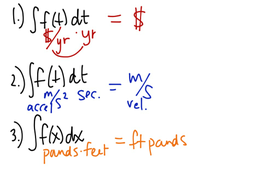 1.) ∫f(t)dt = $
$/yr · yr
2.) ∫f(t)dt = m/s
accel m/s² sec. vel.
3.) ∫f(x)dx = ft pands
pands·feet